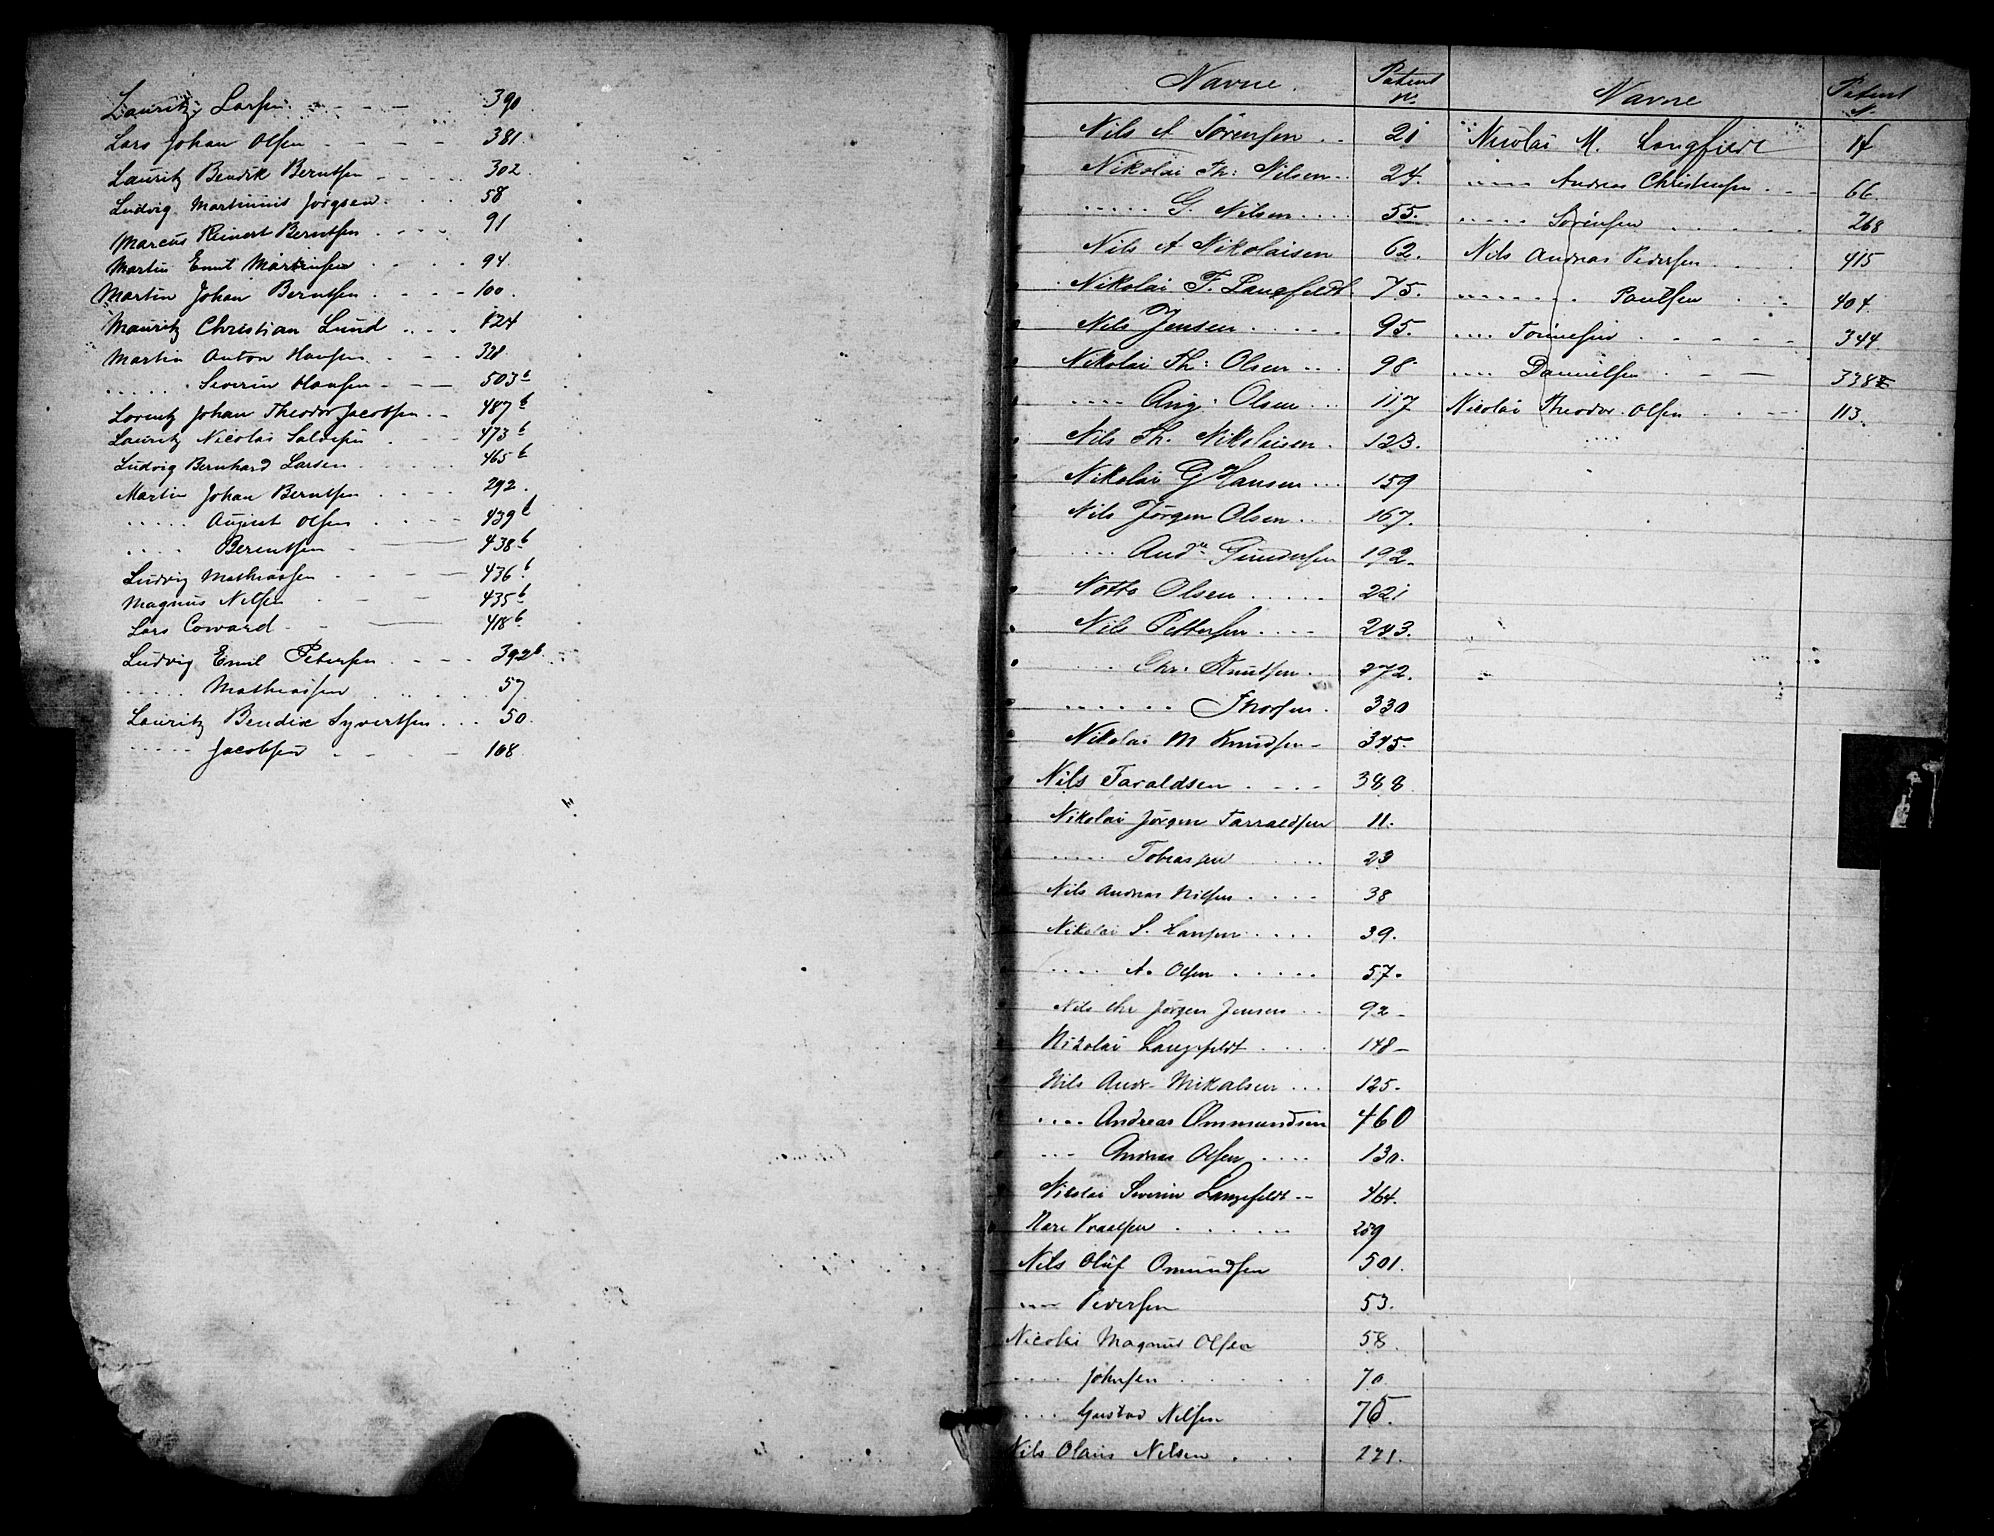 Lauritz Larsen - - - 390
Lars Johan Olsen - - - - 381.
Lauritz Bendik Berntsen - .... 302.
Ludvig Martinius Jørgsen. . . . 58
Marcus Reinert Berntsen . . . . 91
Martin Emil Martinsen . . . . 94.
Martin Johan Berntsen . . - - 100.
Mauritz Christian Lund . . . . 124
Martin Anton Hansen . . - . 328.
. . . . . . Severin Hansen - - — 503 b
Lorentz Johan Theodor Jacobsen . . 487 b
Lauritz Nicolai Salvesen . - - - 473 b
Ludvig Bernhard Larsen . . . . . 465 b
Martin Johan Berntsen . . . . 292.
. . . . . August Olsen . . . . 439 b
. . . . Berentsen - — — 438 b
Ludvig Mathiassen . - - — 436 b
Magnus Nilsen - - — 435 b
Lars Coward - — — 418 b
Ludvig Emil Petersen . . - - 392 b
. . . . . Mathiassen . . . . . 57
Lauritz Bendix Syvertsen . . . 50.
. . . . . Jacobsen - - — - 108
Navne. Patent N.
Nils A Sørensen . . 21
Nikolai Th: Nilsen . . . 24.
. . . . . G. Nilsen . . . . 55.
Nils A Nikolaisen 62.
Nikolai F. Langfeldt. 75.
Nils Jensen . . . . . 95.
Nikolai Th: Olsen . . . 98.
. . . . Aug: Olsen . . . 117
Nils Th. Nikolaisen . 123.
Nikolai G Hansen . . . 159
Nils Jørgen Olsen . . . 167.
. . . . And. Gundersen 192.
Notto Olsen . . . . . 221
Nils Pettersen . . . . 243.
. . . Chr: Knutsen . . 272.
. . . . . . Thorsen . 330
Nikolai M Knudsen - 345.
Nils Taraldsen . . . . 388
Nikolai Jørgen Tarraldsen 11.
. . . . . Tobiassen . . . . . 23
Nils Andreas Nilsen . . . . 38
Nikolai S. Hansen . . . . 39.
. . . . A. Olsen . . . . . 57.
Nils Chr Jørgen Jensen . . 92 -
Nikolai Langfeldt . . . . 148 -
Nils Andr. Mikalsen . . . 125.
. . . . Andreas Ommundsen 460
. . . Andreas Olsen . . . . 130.
Nicolai Severin Langefeldt - - 464.
. . . . . . 209
Nils Oluf Omundsen 501.
. . . . Pedersen 53.
Nicolai Magnus Olsen 58.
. . . . Johnsen . . . . . 70.
. . . . Gustav Nilsen 75.
Nils Olaus Nilsen . . . 221.
Navne Patent N.
Nicolai M. Langfeldt 14
. . . . . Andreas Christensen . . . 66.
. . . . . Sørensen . . . . . . 268
Nils Andreas Pedersen . . . . 415
. . . . . . . Paulsen . . . 404.
. . . . Tønnesen . . . . . 344.
. . . . Danielsen . - — 338
Nicolai Theodor Olsen . . . . . 113.